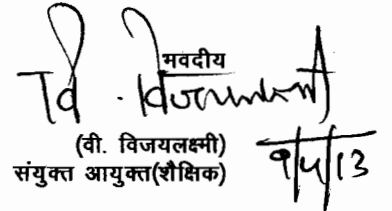 भवदीय
वि. विजयलक्ष्मी
(वी. विजयलक्ष्मी)
संयुक्त आयुक्त(शैक्षिक)
9/5/13